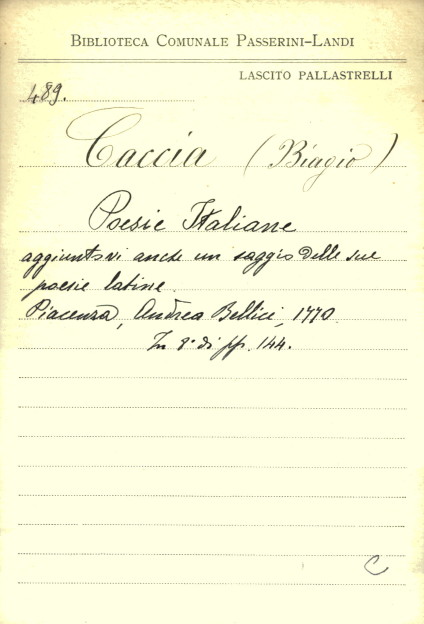 BIBLIOTECA COMUNALE PASSERINI-LANDI
LASCITO PALLASTRELLI
489.
Caccia (Biagio)
Poesie Italiane
aggiuntovi anche un saggio delle sue
poesie latine.
Piacenza, Andrea Bellici, 1770.
In 8° di pp. 144.
C